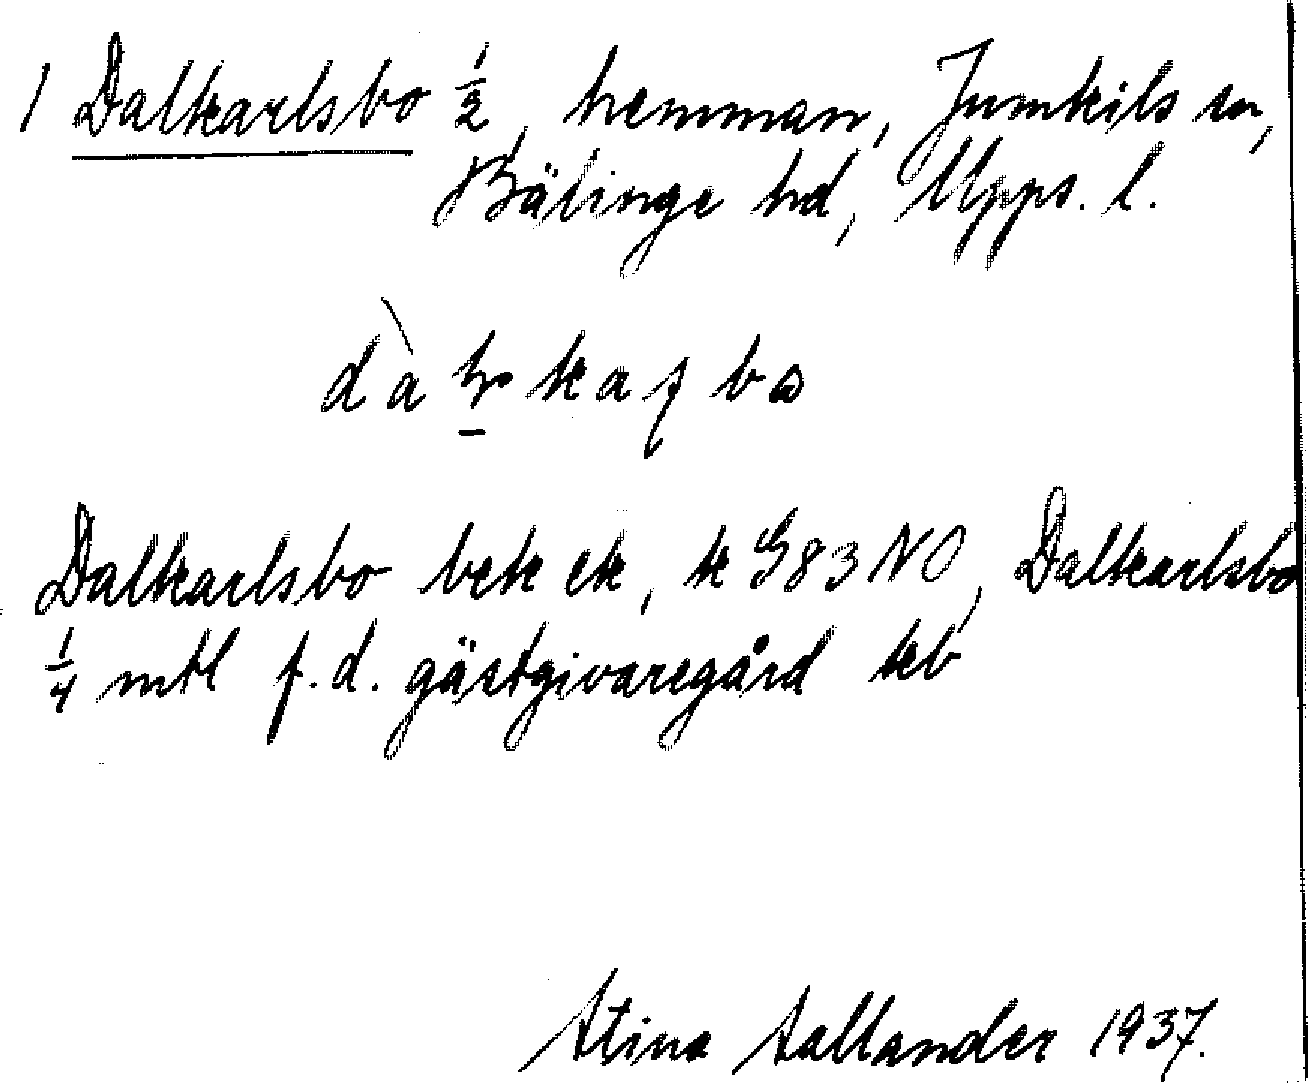 1 Dalkarlsbo ½, hemman, Jumkils sn,
Bälinge hd, Upps. l.
Dalkarlsbo bek ek, k G83 NO, Dalkarlsbo
¼ mtl f.d. gästgivaregård kb
Stina Sallander 1937.